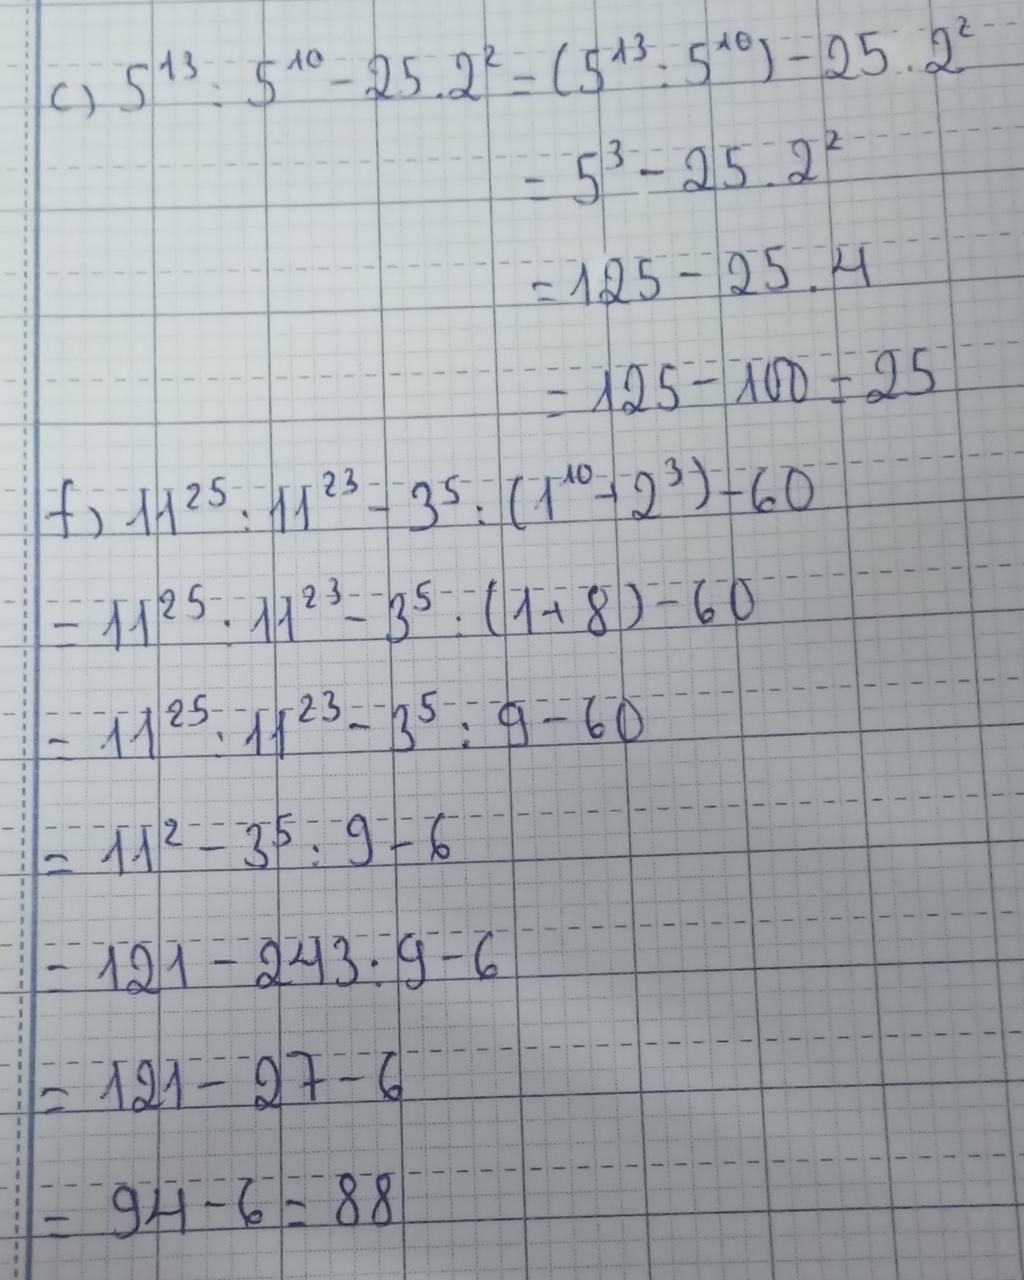 c) 5¹³ : 5¹⁰ - 25 . 2² = (5¹³ : 5¹⁰) - 25 . 2²
= 5³ - 25 . 2²
= 125 - 25 . 4
= 125 - 100 = 25
f) 11²⁵ : 11²³ - 3⁵ : (1¹⁰ + 2³) - 60
= 11²⁵ : 11²³ - 3⁵ : (1 + 8) - 60
= 11²⁵ : 11²³ - 3⁵ : 9 - 60
= 11² - 3⁵ : 9 - 6
= 121 - 243 : 9 - 6
= 121 - 27 - 6
= 94 - 6 = 88